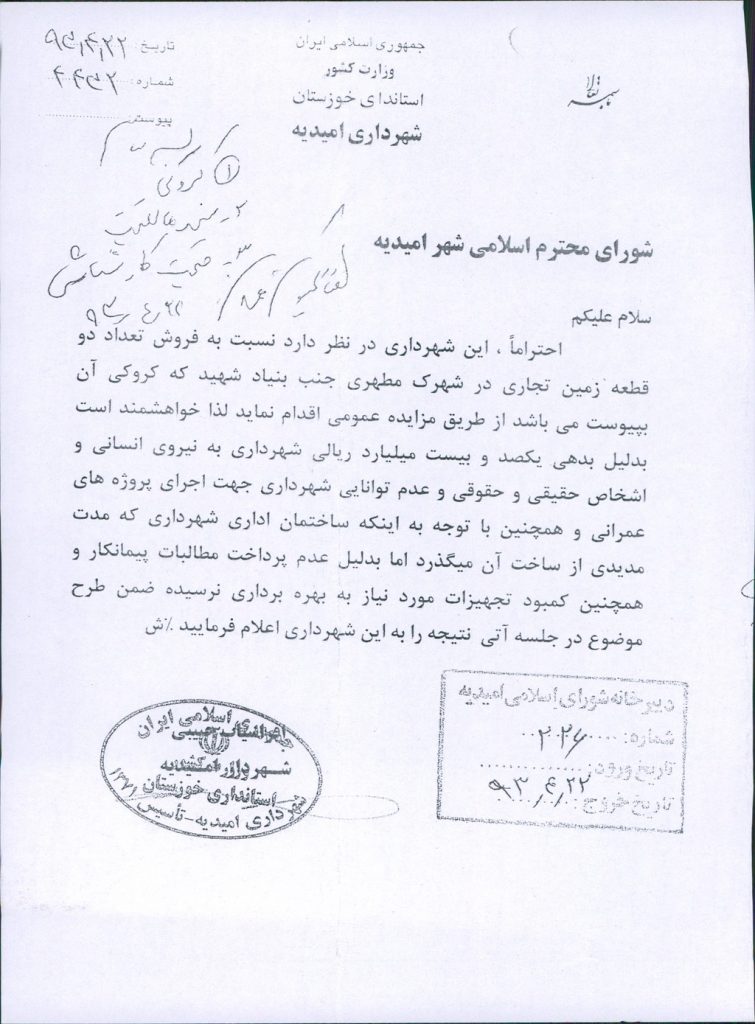 بسمه تعالی
جمهوری اسلامی ایران
وزارت کشور
استانداری خوزستان
شهرداری امیدیه
تاریخ: ۹۳,۴,۲۲
شماره: ۴۰۴۳۲
پیوست:
۱ کروکی
۳- قیمت کارشناسی
شورای محترم اسلامی شهر امیدیه
سلام علیکم
احتراماً ، این شهرداری در نظر دارد نسبت به فروش تعداد دو
قطعه زمین تجاری در شهرک مطهری جنب بنیاد شهید که کروکی آن
بپیوست می باشد از طریق مزایده عمومی اقدام نماید لذا خواهشمند است
بدلیل بدهی یکصد و بیست میلیارد ریالی شهرداری به نیروی انسانی و
اشخاص حقیقی و حقوقی و عدم توانایی شهرداری جهت اجرای پروژه های
عمرانی و همچنین با توجه به اینکه ساختمان اداری شهرداری که مدت
مدیدی از ساخت آن میگذرد اما بدلیل عدم پرداخت مطالبات پیمانکار و
همچنین کمبود تجهیزات مورد نیاز به بهره برداری نرسیده ضمن طرح
موضوع در جلسه آتی نتیجه را به این شهرداری اعلام فرمایید ٪ش
دبیرخانه شورای اسلامی امیدیه
شماره:
تاریخ ورود:
تاریخ خروج: ۹۳,۴,۲۲
اسلامی ایران
استانداری خوزستان
شهرداری امیدیه-تأسیس ۱۳۷۱